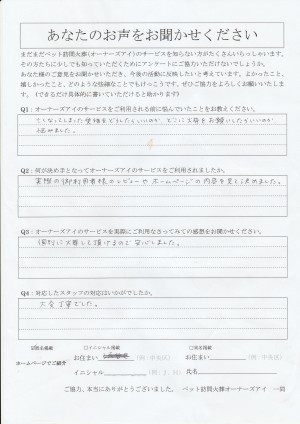 あなたのお声をお聞かせください
まだまだペット訪問火葬(オーナーズアイ)のサービスを知らない方がたくさんいらっしゃいます。
その方たちに少しでも知っていただくためにアンケートにご協力いただけないでしょうか。
あなた様のご意見をお聞かせいただき、今後の活動に反映したいと考えています。よかったこと、
嬉しかったこと、どのような些細なことでもけっこうです。ぜひご協力をよろしくお願いいたしま
す。（できるだけ具体的に書いていただけると助かります）
Q1：オーナーズアイのサービスをご利用される前に悩んでいたことをお教えください。
亡くなってしまった愛猫をどうしたらいいのか、どこに火葬をお願いしたらいいのか、
悩みました。
Q2：何が決め手となってオーナーズアイのサービスをご利用されましたか。
実際の御利用者様のレビューやホームページの内容を見て決めました。
Q3：オーナーズアイのサービスを実際にご利用なさってみての感想をお聞かせください。
個別に火葬して頂けるので安心しました。
Q4：対応したスタッフの対応はいかがでしたか。
大変丁寧でした。
ホームページでご紹介
□イニシャル掲載 □実名掲載
お住まい （例：中央区） お住まい （例：中央区）
イニシャル 氏名
ご協力、本当にありがとうございました。 ペット訪問火葬オーナーズアイ 一同